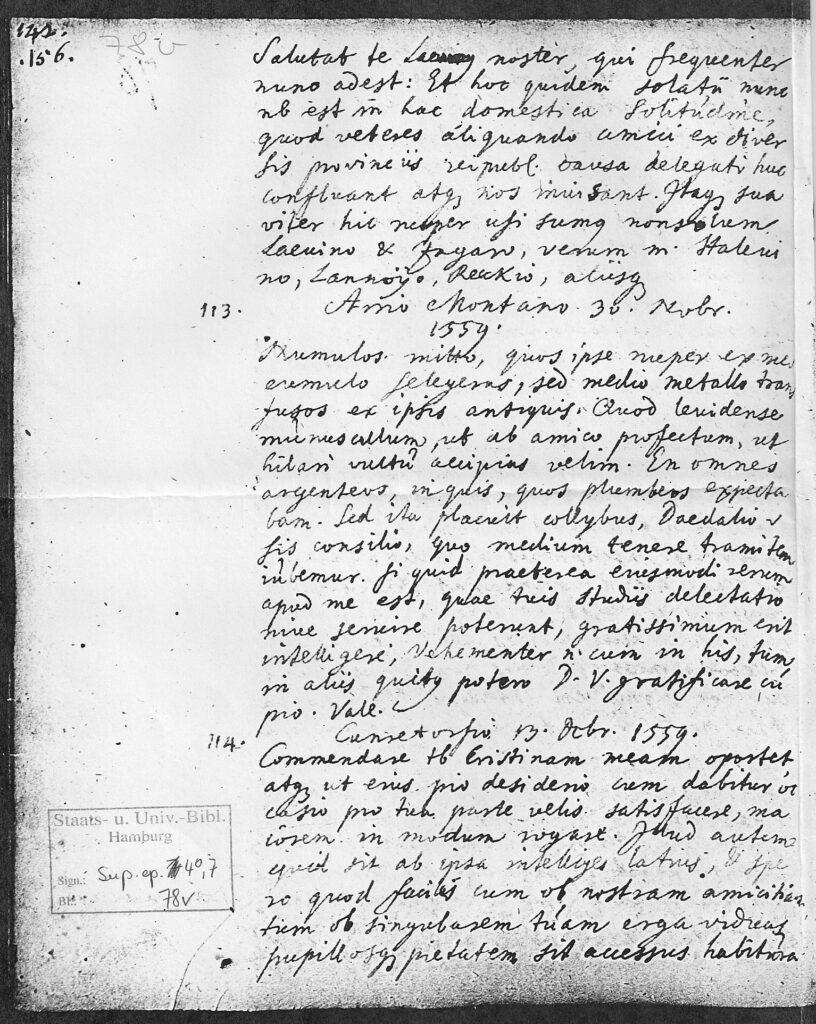 142.
156.
78v
Salutat te noster, qui frequenter
nunc adest: Et hoc quidem solatii nunc
nb est in hac domestica solitudine,
quod veteres aliquando amici ex diver
sis provinciis reipubl. causa delegati huc
confluant atq nos invisant. Itaq sua
viter hic nuper usi sumq non solum
Laevino & Fugaro, verum
no, Lannoyo, Reckio, aliisq
113. Montano 30. Nobr.
1559.
Numulos mitto, quos ipse nuper ex meo
cumulo selegeras, sed medio metallo trans
fusos ex ipsis antiquis. Quod levidense
munusculum, ut ab amico profectum, ut
hilari vultu accipias velim. En omnes
argenteos, inquis, quos plumbeos expecta
bam. Sed ita placuit collybus, Daedalio
sis consilio, quo medium tenere tramitem
iubemur. Si quid praeterea eiusmodi rerum
apud me est, quae tuis studiis delectatio
nive servire poterunt, gratissimum erit
intelligere, Vehementer n. cum in his, tum
in aliis quibq potero D. V. gratificare cu
pio. Vale.
114. 13. Octbr. 1559.
Commendare tb Cristinam meam oportet
atq ut eius pio desiderio cum dabitur oc
casio pro tua parte velis satisfacere, ma
iorem in modum rogare. Illud autem
quid sit ab ipsa intelliges latius, & spe
ro quod facilis cum ob nostram amicitiam
tum ob singularem tuam erga viduas
pupillosq pietatem sit accessus habitura
Staats- u. Univ.-Bibl.
Hamburg
Sign.: Sup. ep. 40,7
Bl.: 78v